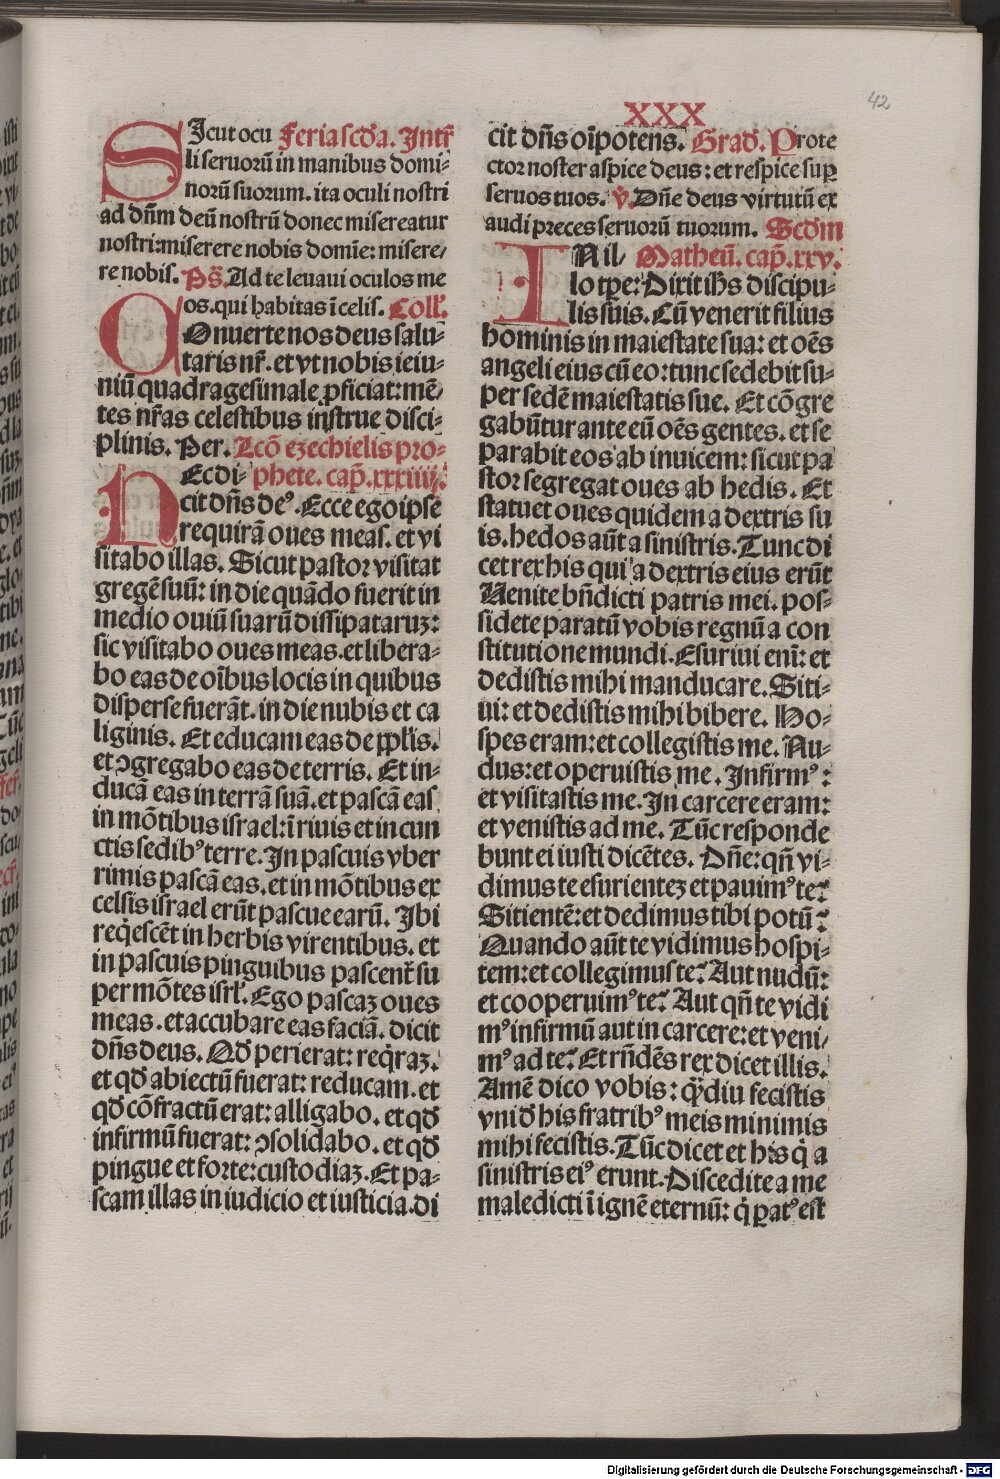 XXX
42
SIcut ocu Feria scd̄a. Intr̄
li seruorū in manibus domi-
norū suorum. ita oculi nostri
ad dn̄m deū nostrū donec misereatur
nostri: miserere nobis domīe: misere/
re nobis. Ps̄. Ad te leuaui oculos me
os. qui habitas ī celis. Coll'.
COnuerte nos deus salu-
taris nr̄. et vt nobis ieiu-
niū quadragesimale ꝓficiat: mē/
tes nr̄as celestibus instrue disci-
plinis. Per. Lcō ezechielis pro-
phete. cap̄. xxxiiij.
HEc di-
cit dn̄s deꝰ. Ecce ego ipse
requirā oues meas. et vi
sitabo illas. Sicut pastor visitat
gregē suū: in die quādo fuerit in
medio ouiū suarū dissipataruz:
sic visitabo oues meas. et libera-
bo eas de oībus locis in quibus
disperse fuerāt. in die nubis et ca
liginis. Et educam eas de ppl'is.
et ꝯgregabo eas de terris. Et in-
ducā eas in terrā suā. et pascā eas
in mōtibus israel: ī riuis et in cun
ctis sedibꝰ terre. In pascuis vber
rimis pascā eas. et in mōtibus ex
celsis israel erūt pascue earū. Ibi
req̇escēt in herbis virentibus. et
in pascuis pinguibus pascent̄ su
per mōtes isrl'. Ego pascaz oues
meas. et accubare eas faciā. dicit
dn̄s deus. Qd̄ perierat: req̇raz.
et qd̄ abiectū fuerat: reducam. et
qd̄ cōfractū erat: alligabo. et qd̄
infirmū fuerat: ꝯsolidabo. et qd̄
pingue et forte: custodiaz. Et pa-
scam illas in iudicio et iusticia. di
cit dn̄s oīpotens. Grad̄. Prote
ctor noster aspice deus: et respice suꝑ
seruos tuos. v̄. Dn̄e deus virtutū ex
audi preces seruorū tuorum. Scd̄m
IN il- Matheū. cap̄. xxv.
lo tꝑe: Dixit ih̄s discipu-
lis suis. Cū venerit filius
hominis in maiestate sua: et oēs
angeli eius cū eo: tunc sedebit su-
per sedē maiestatis sue. Et cōgre
gabūtur ante eū oēs gentes. et se
parabit eos ab inuicem: sicut pa
stor segregat oues ab hedis. Et
statuet oues quidem a dextris su
is. hedos aūt a sinistris. Tunc di
cet rex his qui a dextris eius erūt
Uenite bn̄dicti patris mei. pos-
sidete paratū vobis regnū a con
stitutione mundi. Esuriui enī: et
dedistis mihi manducare. Siti-
ui: et dedistis mihi bibere. Ho-
spes eram: et collegistis me. Nu-
dus: et operuistis me. Infirmꝰ:
et visitastis me. In carcere eram:
et venistis ad me. Tūc responde
bunt ei iusti dicētes. Dn̄e: qn̄ vi-
dimus te esurientez et pauimꝰ te?
Sitientē: et dedimus tibi potū?
Quando aūt te vidimus hospi-
tem: et collegimus te? Aut nudū:
et cooperuimꝰ te? Aut qn̄ te vidi
mꝰ infirmū aut in carcere: et veni/
mꝰ ad te? Et rn̄dēs rex dicet illis.
Amē dico vobis: q̄diu fecistis
vni d̄ his fratribꝰ meis minimis
mihi fecistis. Tūc dicet et his q̇ a
sinistris eiꝰ erunt. Discedite a me
maledicti ī ignē eternū: q̇ ꝑatꝰ est
Digitalisierung gefördert durch die Deutsche Forschungsgemeinschaft - DFG